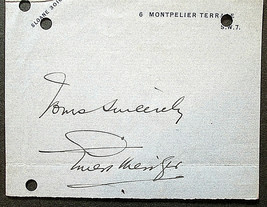 SLOANE
8 MONTPELIER TERRACE
S.W.7.
Yours Sincerely